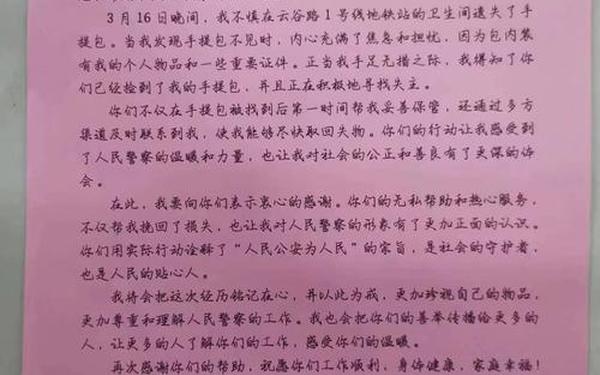 3月16日晚间，我不慎在云谷路1号线地铁站的卫生间遗失了手
提包。当我发现手提包不见时，内心充满了焦急和担忧，因为包内装
有我的个人物品和一些重要证件。正当我手足无措之际，我得知了你
们已经捡到了我的手提包，并且正在积极地寻找失主。
你们不仅在手提包被找到后第一时间帮我妥善保管，还通过多方
渠道及时联系到我，使我能够尽快取回失物。你们的行动让我感受到
了人民警察的温暖和力量，也让我对社会的公正和善良有了更深的体
会。
在此，我要向你们表示衷心的感谢。你们的无私帮助和热心服务，
不仅帮我挽回了损失，也让我对人民警察的形象有了更加正面的认识。
你们用实际行动诠释了“人民公安为人民”的宗旨，是社会的守护者，
也是人民的贴心人。
我将会把这次经历铭记在心，并以此为戒，更加珍视自己的物品，
更加尊重和理解人民警察的工作。我也会把你们的善举传播给更多的
人，让更多的人了解你们的工作，感受你们的温暖。
再次感谢你们的帮助，祝愿你们工作顺利，身体健康，家庭幸福！